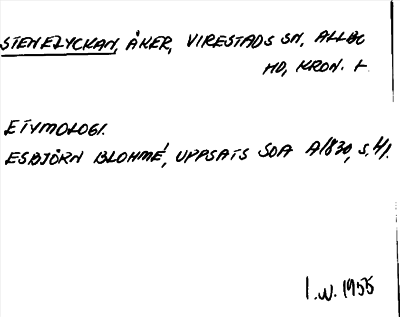 STENELYCKAN, ÅKER, VIRESTADS SN, ALLBO
HD, KRON. L.
ETYMOLOGI.
ESBJÖRN BLOHMÉ, UPPSATS SOA A1830, S. 41.
I.W. 1955